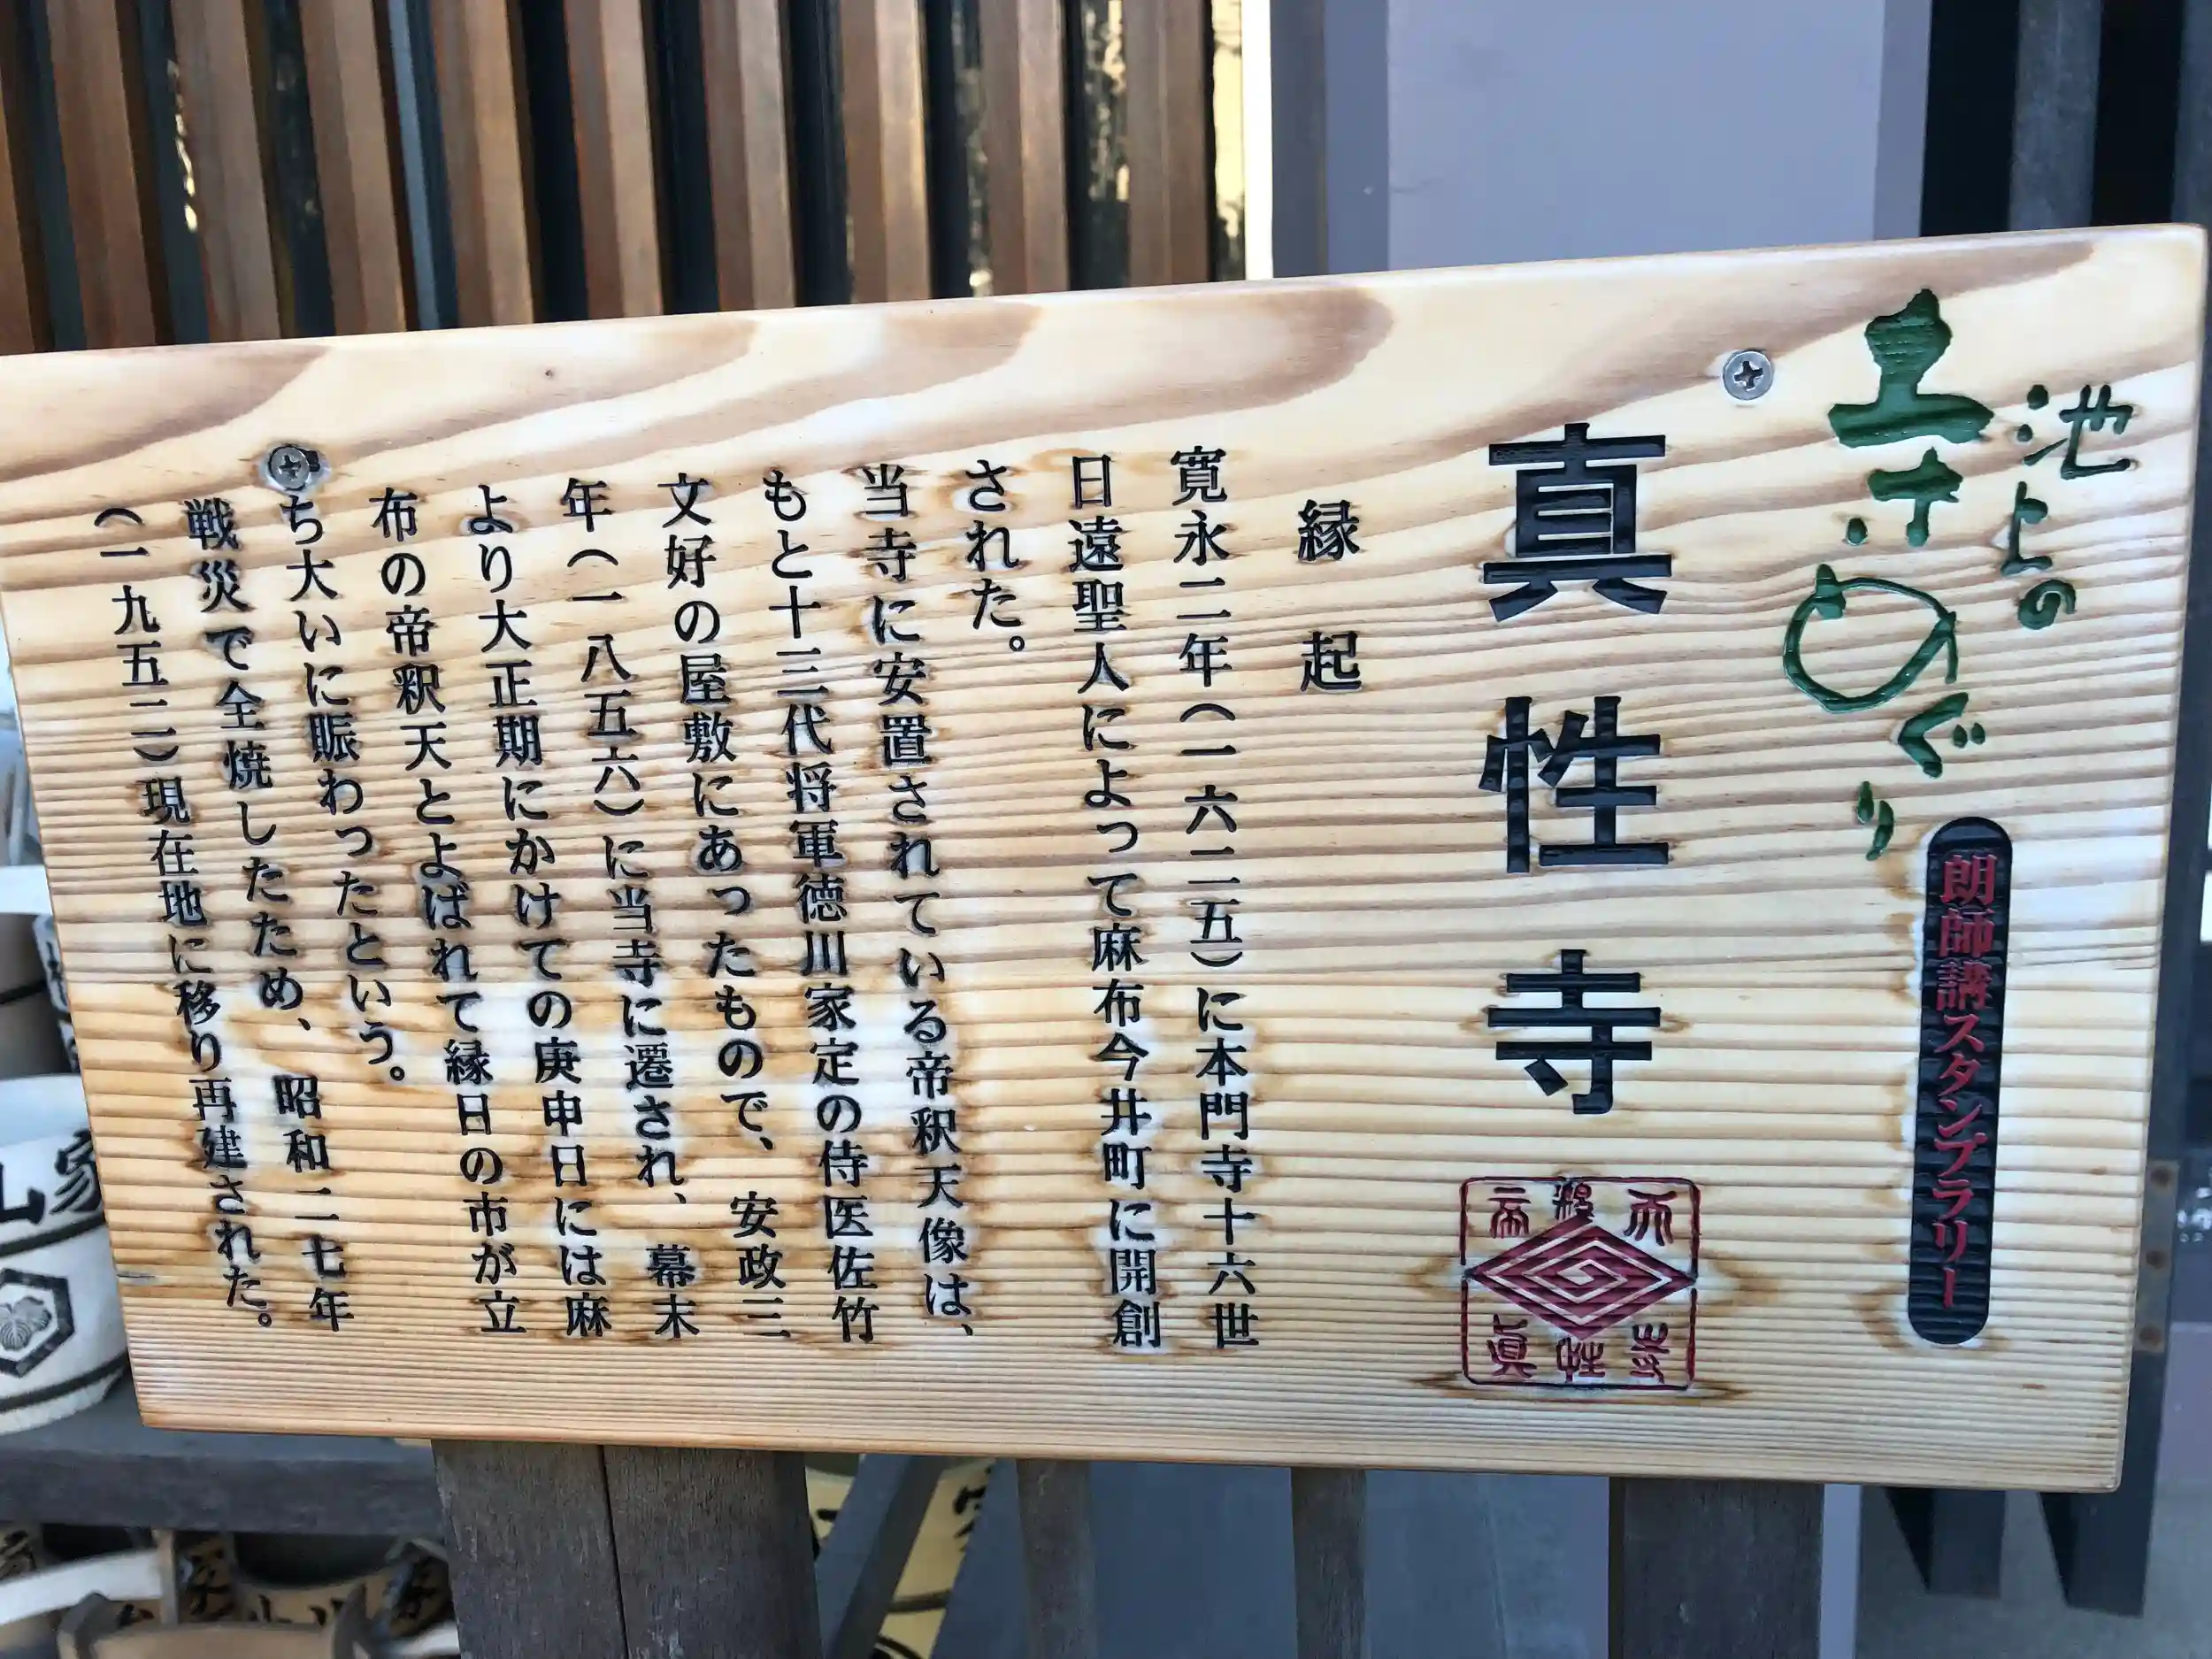 池上の
寺めぐり
朗師講スタンプラリー
真性寺
縁起
寛永二年（一六二五）に本門寺十六世
日遠聖人によって麻布今井町に開創
された。
当寺に安置されている帝釈天像は、
もと十三代将軍徳川家定の侍医佐竹
文好の屋敷にあったもので、安政三
年（一八五六）に当寺に遷され、幕末
より大正期にかけての庚申日には麻
布の帝釈天とよばれて縁日の市が立
ち大いに賑わったという。
戦災で全焼したため、昭和二七年
（一九五二）現在地に移り再建された。